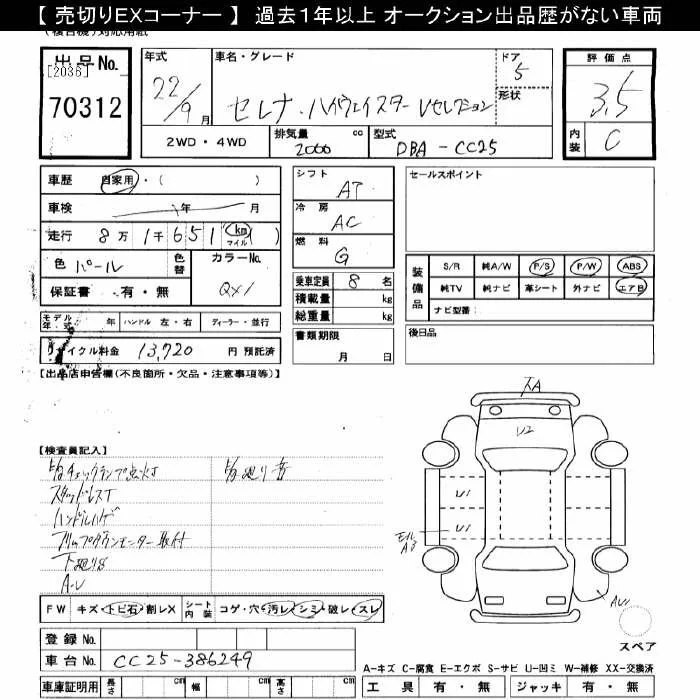 【 売切りEXコーナー 】 過去1年以上 オークション出品歴がない車両
(複合機)対応用紙
出品No.
[2036]
70312
年式
22/9月
車名・グレード
セレナ・ハイウェイスター Vセレクション
ドア
5
形状
2WD・4WD
排気量
2000 cc
型式
DBA-CC25
評価点
3.5
内装
C
車歴 自家用・( )
車検 年 月
走行 8万 1千 6 5 1 (km マイル)( )
色 パール
色替
カラーNo.
QX1
保証書 有・無
モデル年式 年 ハンドル 左・右 ディーラー・並行
リサイクル料金 13,720 円 預託済
シフト
AT
冷房
AC
燃料
G
乗車定員 8 名
積載量 kg
総重量 kg
書類期限
月 日
セールスポイント
装備品
S/R 純A/W P/S P/W ABS
純TV 純ナビ 革シート 外ナビ エアB
ナビ型番:
後日品
【出品店申告欄(不良箇所・欠品・注意事項等)】
【検査員記入】
スタッドレスT
ハンドルハゲ
フリップダウンモニター取付
下廻りS
FW キズ・トビ石・割レX
シート内装 コゲ・穴・汚レ・シミ・破レ・スレ
登録No.
車台No. CC25-386249
車庫証明用 長さ cm 幅 cm 高さ cm
U2
スペア
A-キズ C-腐食 E-エクボ S-サビ U-凹ミ W-補修 XX-交換済
工具 有・無 ジャッキ 有・無